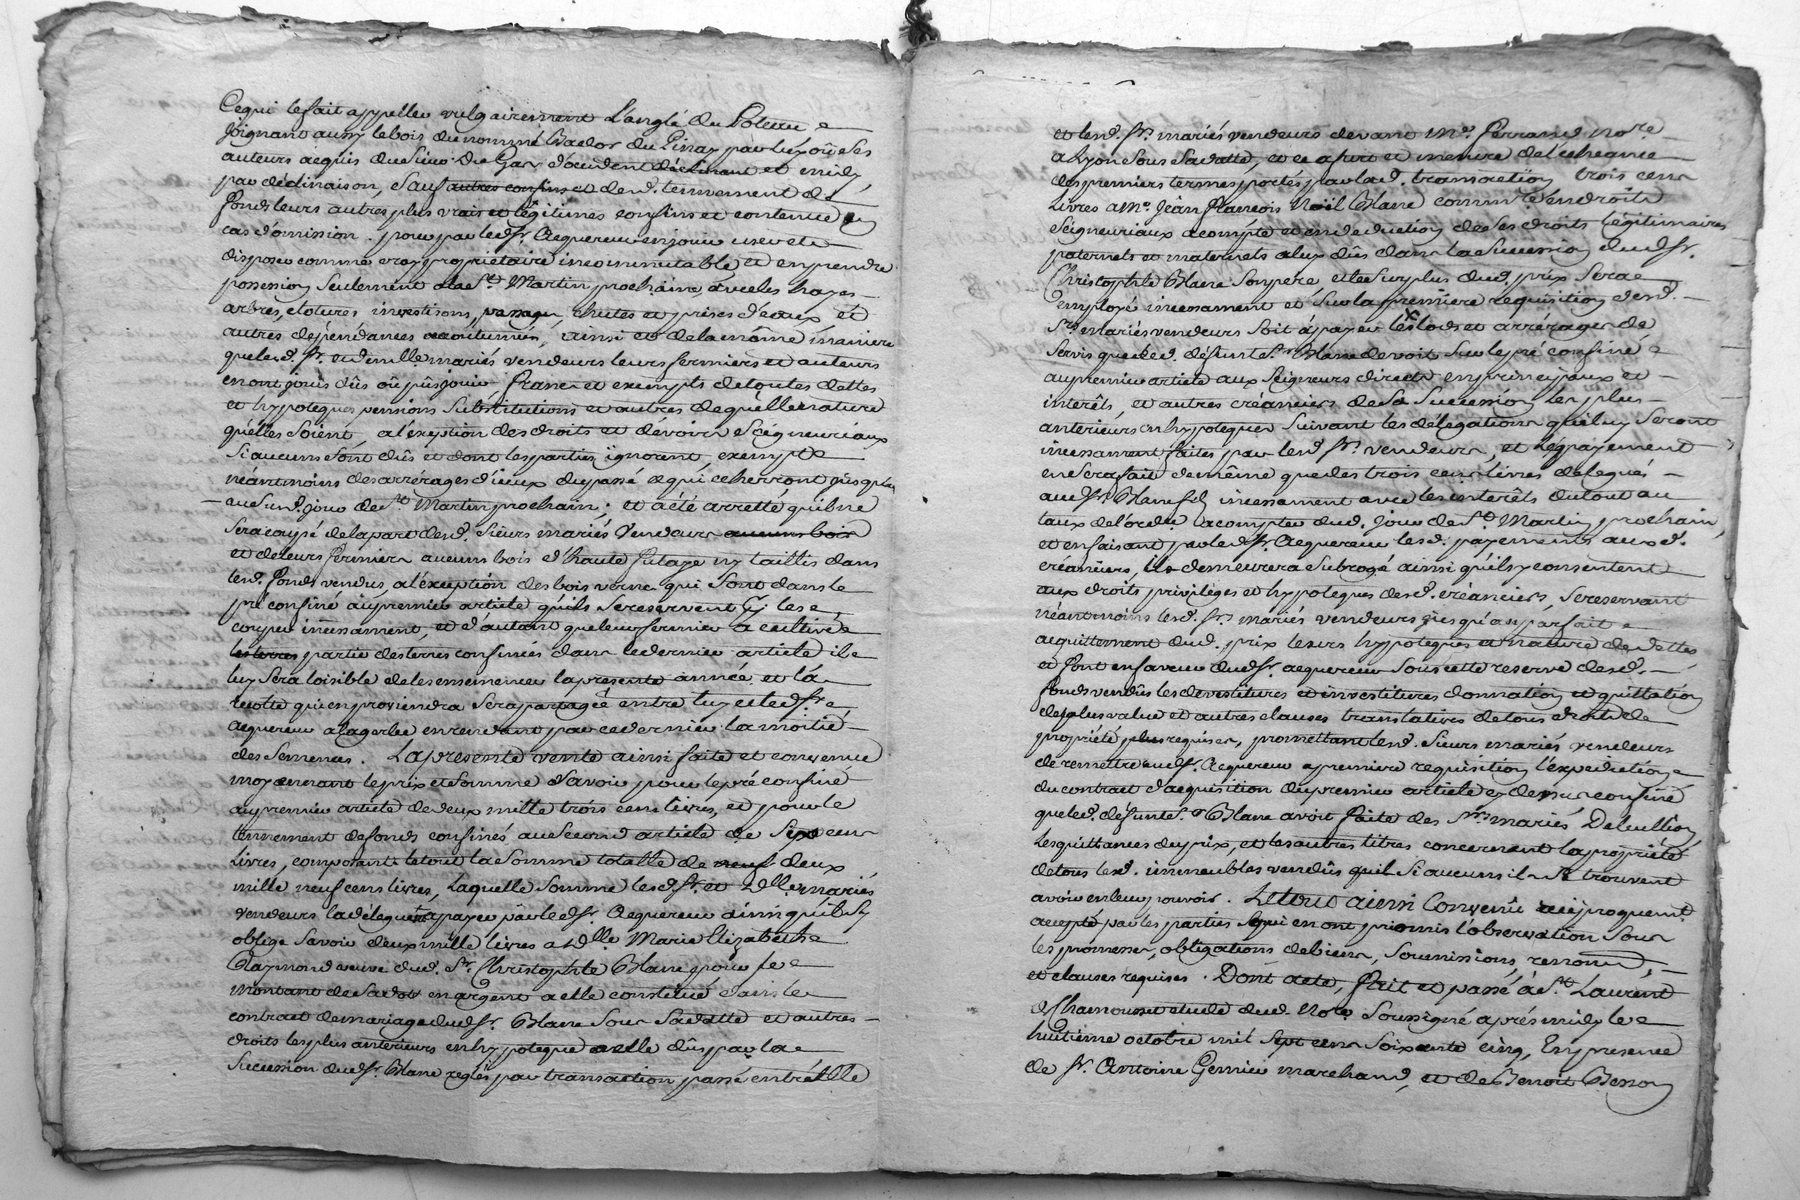 Cequi lefait appeller vulgairement L'angle du Poteau
Joignant aussy lebois dunommé Bador du Pinay par luy oû ses
auteurs acquis du Sieur Du Gas d'occident déclinant et midy,
par déclinaison, sauf autres confins et desd. tennement de
fonds leurs autres plus vrais et légitimes confins et contenue en
cas d'omission. pour par led. Sr. acquereur enjouir user et
disposer comme vray proprietaire incommutable et enprendre
possession seulement ala St. Martin prochaine, avec les hayes
arbres, clotures investisons, passages, chutes et prises d'eaux et
autres dépendances accoutumées, ainsi et delamême maniere
queled. Sr. et demlle mariés vendeurs leurs fermiers et auteurs
enont jouis dûs oû pûs jouir franc et exempts detoutes dettes
et hypoteques pensions substitutions et autres dequelle nature
qu'elles soient, al'exeption des droits et dévoirs Seigneuriaux
si aucuns sont dûs et dont les parties ignorent, exempte
néantmoins des arrérages d'iceux du passé aqui echerront jusqu'au
aud. jour de St. Martin prochain; et a été arretté qu'il ne
sera coupé delapart desd. Sieurs mariés Vendeurs aucuns bois
et deleurs fermiers aucuns bois d'haute futaye ny taillis dans
lesd. fonds vendus, al'éxeption des bois verne qui sont dans le
pré confiné aupremier article qu'ils sereservent de les
couper incessament, et d'autant queleur fermier a cultivé
les terres partie desterres confinées dans ledernier article il
luy sera loisible deles ensemencer laprésente année, et la
recolte qui en proviendra sera partagée entre luy et led. Sr.
acquereur alagerbe enrecevant par cedernier lamoitié
des Semences. Laprésente vente ainsi faite et convenue
moyennant leprix et somme Savoir pour lepré confiné
aupremier article de deux mille trois cens livres, et pour le
tennement defonds confinés au second article de Six cens
Livres, composants letout la somme totalle de neuf deux
mille neuf cens livres, Laquelle somme lesd. Sr. et Dlle mariés
vendeurs la déleguent apayer par led. Sr. acquereur ainsi qu'il s'y
oblige Savoir deux mille livres a Dlle Marie Elizabeth
Raymond veuve dud. Sr. Christophle Blanc pour le
montant de Sadot en argent a elle constitué dans le
contract demariage dud. Sr. Blanc sous Sadatte et autres
droits les plus antérieurs en hypoteque a elle dûs par la
Succession dud. Sr. Blanc reglés par transaction passé entr'elle
et lesd. Srs. mariés vendeurs devant Me. Ferrand Nore
a Lyon sous Sadatte, et ce afur et mesure de l'echeance
des premiers termes portés par lad. transaction trois cens
Livres a Me. Jean François Noël Blanc commre. en droits
Seigneuriaux acompte et endeduction de ses droits légitimaires
paternels et maternels aluy dûs dans la succession dud. Sr.
Christophle Blanc Sonpere, et le surplus dud. prix sera
employé incessament et sur la premiere requisition desd.
Srs. mariés vendeurs soit àpayer les lods et arrérages de
servis queled. défunt Sr. Blanc devoit sur lepré confiné
aupremier article aux Seigneurs directs en principaux et
intérêts, et autres créanciers de sa succession les plus
anterieurs en hypoteques suivant les délégations qui luy seront
incessament faites par lesd. Srs. vendeurs, et lepayement
en sera fait demême que des trois cens livres delegués
aud. Sr. Blanc fils incessament avec les intérêts dutout au
taux del'ordce acompter dud. jour de St. Martin prochain,
et enfaisant par led. Sr. acquereur lesd. payements auxd.
créanciers, il demeurera subrogé ainsi qu'ils y consentent
aux droits priviléges et hypoteques desd. créanciers, Sereservant
néantmoins lesd. Srs mariés vendeurs jusqu'au parfait
acquittement dud. prix leurs hypoteques et nature de dettes
et font enfaveur dud. Sr. acquereur sous cette reserve desd.
fonds vendus les devestitures et investitures donnation et quittation
deplus value et autres clauses translatives detous droits de
propriété plus requises, promettant lesd. Sieurs mariés vendeurs
de remettre aud. Sr. acquereur apremiere requisition l'expedition
du contract d'acquisition dupremier article cy dessus confiné
queled. défunt Sr. Blanc avoit faite des Srs. mariés Delullion
Les quittances du prix, et les autres titres concernant la propriété
detous lesd. immeubles vendûs qu'il si aucuns il se trouvent
avoir enleur pouvoir. Le tout ainsi Convenû reciproquement
accepté par les parties qui en ont promis l'observation sous
les promesses, obligations debiens, soumissions, renons,
et clauses requises. Dont acte, fait et passé à St. Laurent
de Chamousset etude dud. Nore. Soussigné après midy le
huitieme octobre mil sept cens soixante cinq, En presence
de Sr. Antoine Genier marchand, et de Benoit Besson